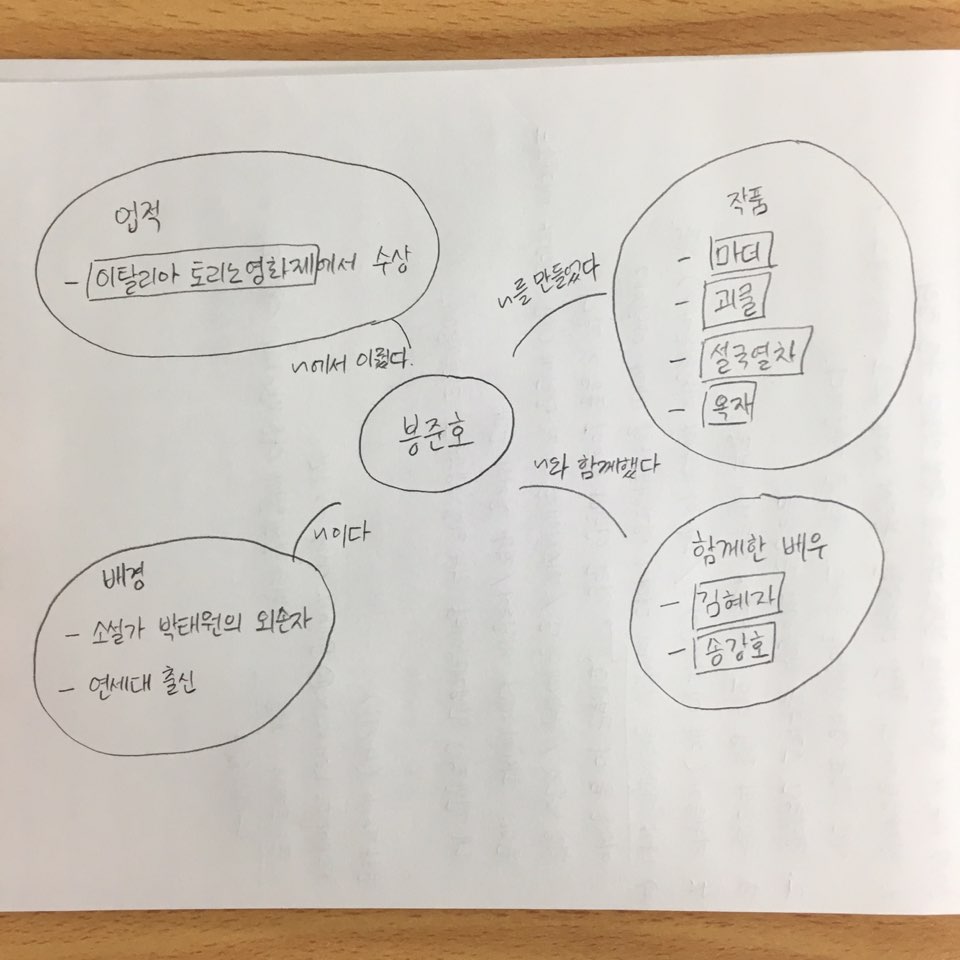 업적
- 이탈리아 토리노영화제에서 수상
작품
- 마더
- 괴물
- 설국열차
- 옥자
~를 만들었다
~에서 이뤘다.
봉준호
~와 함께했다
~이다
배경
- 소설가 박태원의 외손자
- 연세대 출신
함께한 배우
- 김혜자
- 송강호